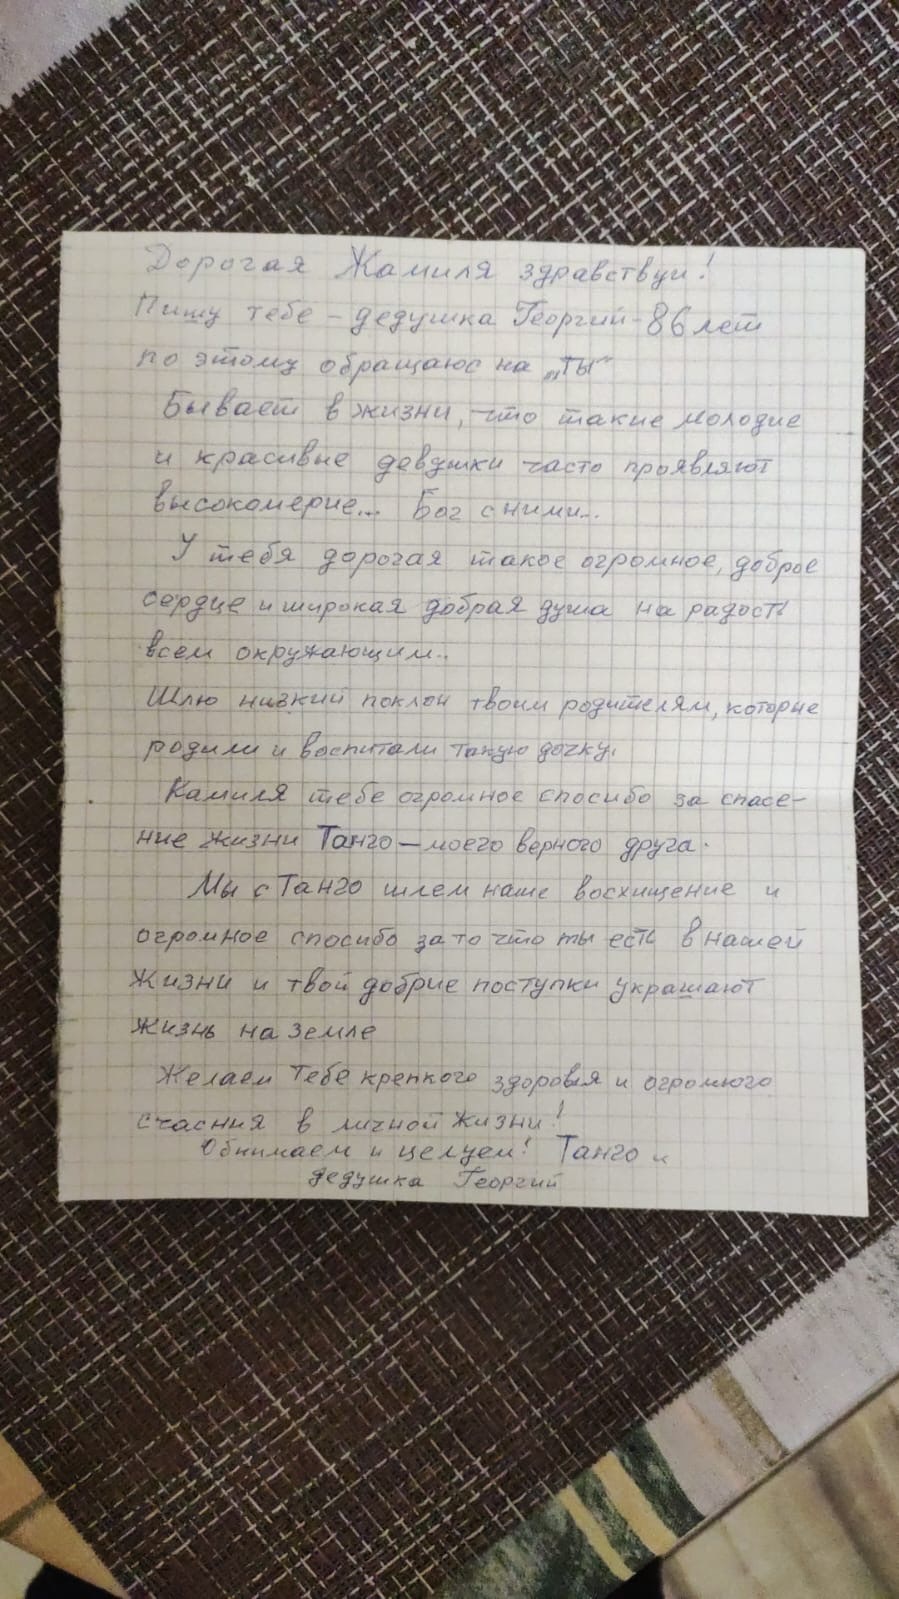 Дорогая Жамиля здравствуй!
Пишу тебе - дедушка Георгий - 86 лет
по этому обращаюс на „ты"
Бывает в жизни, что такие молодые
и красивые девушки часто проявляют
высокомерие... Бог с ними..
У тебя дорогая такое огромное, доброе
сердце и широкая добрая душа на радость
всем окружающим..
Шлю низкий поклон твоим родителям, которые
родили и воспитали такую дочку.
Камиля тебе огромное спосибо за спасе-
ние жизни Танго - моего верного друга.
Мы с Танго шлем наше восхищение и
огромное спосибо за то что ты есть в нашей
жизни и твой добрые поступки украшают
жизнь на земле
Желаем тебе крепкого здоровья и огромного
счасния в личной жизни!
Обнимаем и целуем! Танго и
дедушка Георгий